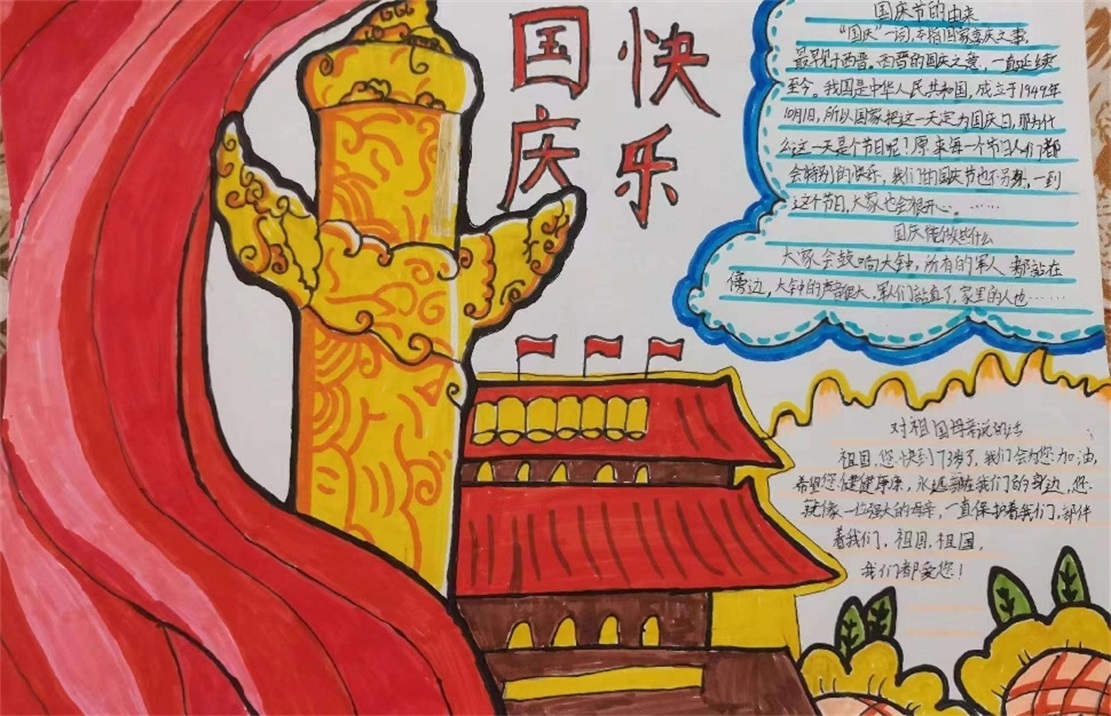 国庆
快乐
国庆节的由来
“国庆”一词，本指国家喜庆之事，
最早见于西晋。西晋的国庆之意，一直延续
至今。我国是中华人民共和国，成立于1949年
10月1日，所以国家把这一天定为国庆日，那为什
么这一天是个节日呢！原来每一个节日人们都
会特别的快乐，我们的国庆节也不另外，一到
这个节日，大家也会很开心。……
国庆能做些什么
大家会敲响大钟，所有的军人都站在
傍边，大钟的声音很大，军人们站直了，家里的人也……
对祖国母亲说的话
祖国，您快到73岁了，我们会为您加油，
希望您健健康康，永远在我们的身边，您
就像一位强大的母亲，一直保护着我们，部伴
着我们，祖国，祖国，
我们都爱您！